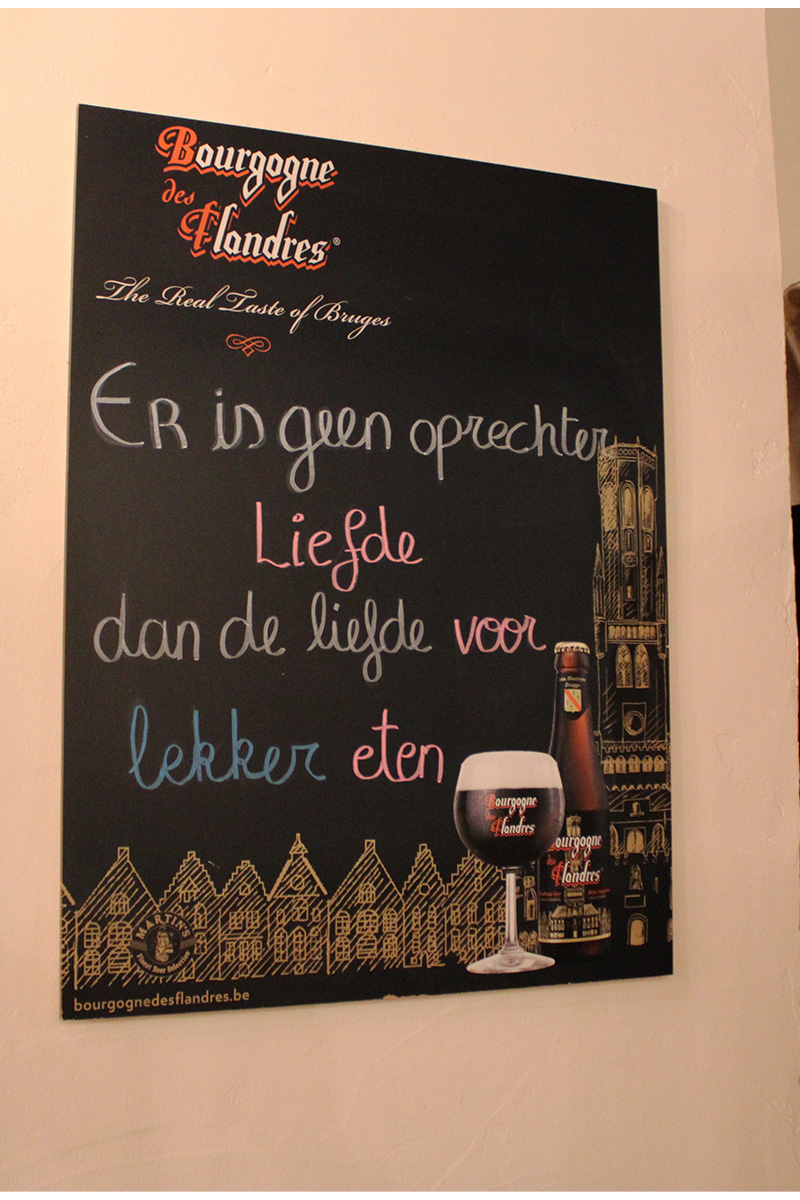 Bourgogne
des
Flandres®
The Real Taste of Bruges
Er is geen oprechter
Liefde
dan de liefde voor
lekker eten
Bourgogne
des
Flandres
Bourgogne
des
Flandres®
MARTIN'S
Finest Beer Selection
bourgognedesflandres.be